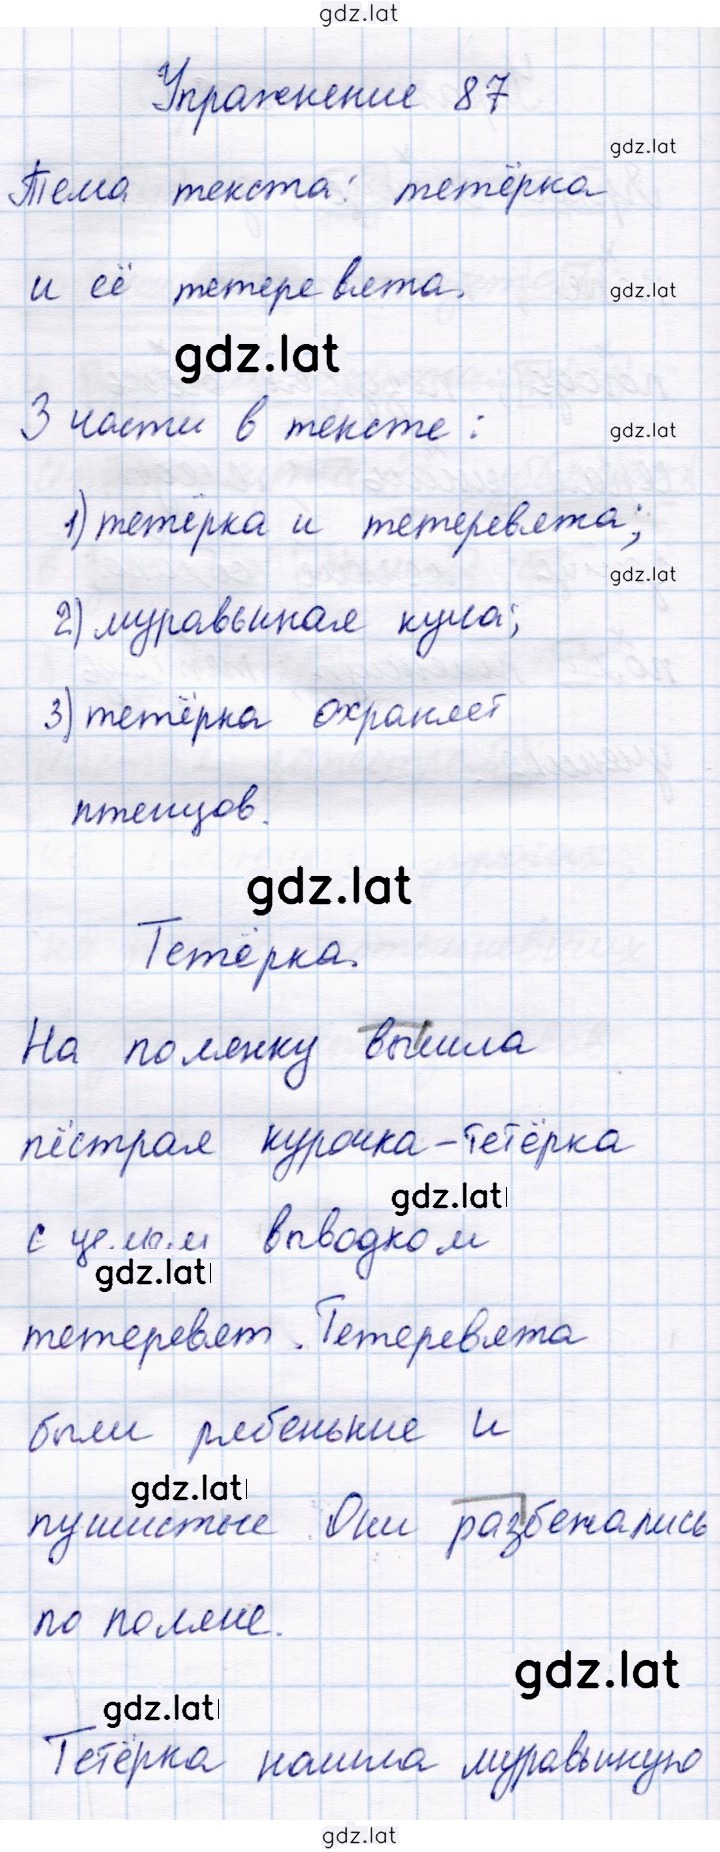 gdz.lat
Упражнение 87
gdz.lat
Тема текста: тетёрка
и её тетеревята.
gdz.lat
gdz.lat
3 части в тексте:
gdz.lat
1) тетёрка и тетеревята;
gdz.lat
2) муравьиная куча;
3) тетёрка охраняет
птенцов.
gdz.lat
Тетёрка.
На полянку вышла
пёстрая курочка-тетёрка
gdz.lat
с целым выводком
gdz.lat
тетеревят. Тетеревята
были рябенькие и
gdz.lat
пушистые. Они разбежались
по поляне.
gdz.lat
gdz.lat
Тетёрка нашла муравьиную
gdz.lat